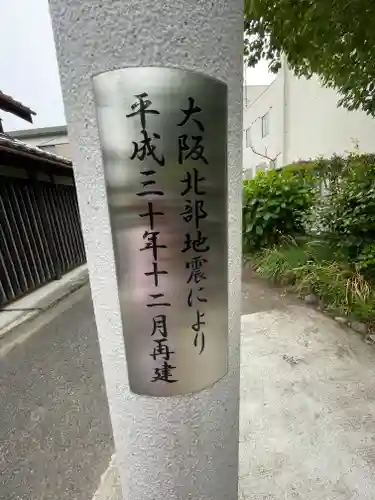 大阪北部地震により
平成三十年十二月再建